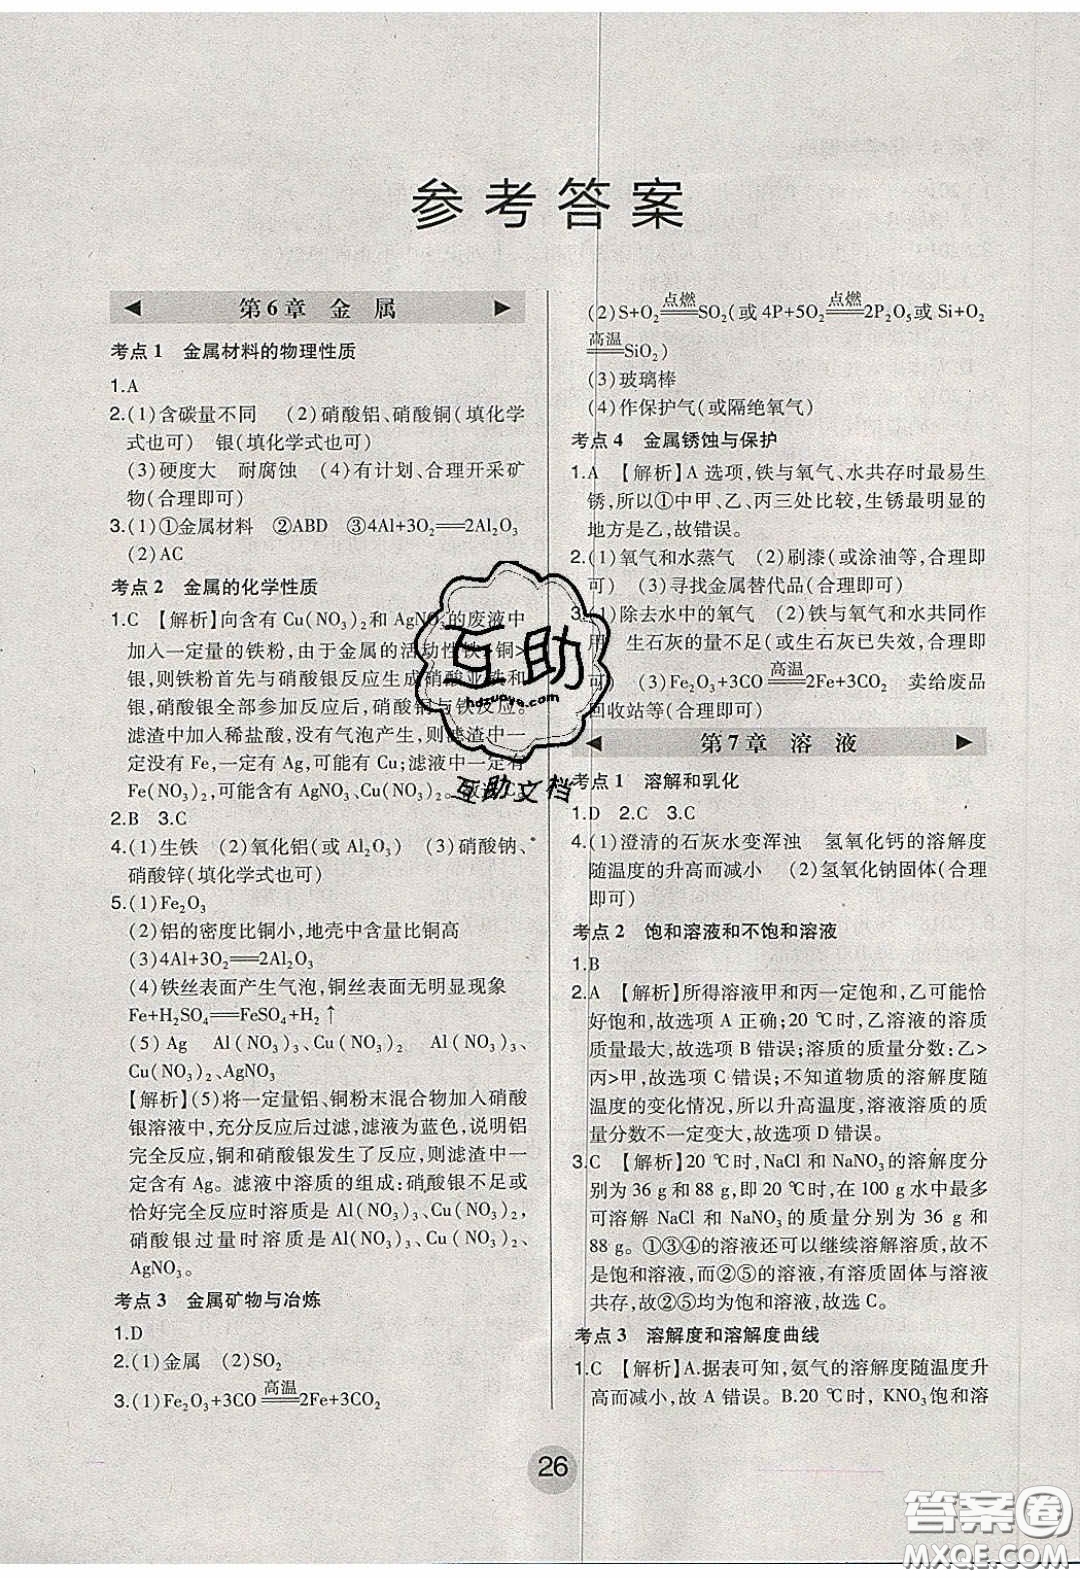 参考答案
第6章 金 属
考点 1 金属材料的物理性质
1.A
2.(1)含碳量不同 (2)硝酸铝、硝酸铜(填化学
式也可) 银(填化学式也可)
(3)硬度大 耐腐蚀 (4)有计划、合理开采矿
物(合理即可)
3.(1)①金属材料 ②ABD ③4Al+3O₂══2Al₂O₃
(2)AC
考点 2 金属的化学性质
1.C 【解析】向含有 Cu(NO₃)₂和 AgNO₃的废液中
加入一定量的铁粉,由于金属的活动性铁>铜>
银,则铁粉首先与硝酸银反应生成硝酸亚铁和
银,硝酸银全部参加反应后,硝酸铜与铁反应。
滤渣中加入稀盐酸,没有气泡产生,则滤渣中一
定没有 Fe,一定有 Ag,可能有 Cu;滤液中一定有
Fe(NO₃)₂,可能含有 AgNO₃、Cu(NO₃)₂。故选 C。
2.B 3.C
4.(1)生铁 (2)氧化铝(或 Al₂O₃) (3)硝酸钠、
硝酸锌(填化学式也可)
5.(1)Fe₂O₃
(2)铝的密度比铜小,地壳中含量比铜高
(3)4Al+3O₂══2Al₂O₃
(4)铁丝表面产生气泡,铜丝表面无明显现象
Fe+H₂SO₄══FeSO₄+H₂↑
(5) Ag Al(NO₃)₃、Cu(NO₃)₂ Al(NO₃)₃、
Cu(NO₃)₂、AgNO₃
【解析】(5)将一定量铝、铜粉末混合物加入硝酸
银溶液中,充分反应后过滤,滤液为蓝色,说明铝
完全反应,铜和硝酸银发生了反应,则滤渣中一
定含有 Ag。滤液中溶质的组成:硝酸银不足或
恰好完全反应时溶质是 Al(NO₃)₃、Cu(NO₃)₂,
硝酸银过量时溶质是 Al(NO₃)₃、Cu(NO₃)₂、
AgNO₃。
考点 3 金属矿物与冶炼
1.D
2.(1)金属 (2)SO₂
3.(1)Fe₂O₃+3CO══高温══2Fe+3CO₂
(2)S+O₂══点燃══SO₂(或 4P+5O₂══点燃══2P₂O₅或 Si+O₂
══高温══SiO₂)
(3)玻璃棒
(4)作保护气(或隔绝氧气)
考点 4 金属锈蚀与保护
1.A 【解析】A 选项,铁与氧气、水共存时最易生
锈,所以①中甲、乙、丙三处比较,生锈最明显的
地方是乙,故错误。
2.(1)氧气和水蒸气 (2)刷漆(或涂油等,合理即
可) (3)寻找金属替代品(合理即可)
3.(1)除去水中的氧气 (2)铁与氧气和水共同作
用 生石灰的量不足(或生石灰已失效,合理即
可) (3)Fe₂O₃+3CO══高温══2Fe+3CO₂ 卖给废品
回收站等(合理即可)
第7章 溶 液
考点 1 溶解和乳化
1.D 2.C 3.C
4.(1)澄清的石灰水变浑浊 氢氧化钙的溶解度
随温度的升高而减小 (2)氢氧化钠固体(合理
即可)
考点 2 饱和溶液和不饱和溶液
1.B
2.A 【解析】所得溶液甲和丙一定饱和,乙可能恰
好饱和,故选项 A 正确;20 ℃时,乙溶液的溶质
质量最大,故选项 B 错误;溶质的质量分数:乙>
丙>甲,故选项 C 错误;不知道物质的溶解度随
温度的变化情况,所以升高温度,溶液溶质的质
量分数不一定变大,故选项 D 错误。
3.C 【解析】20 ℃时,NaCl 和 NaNO₃的溶解度分
别为 36 g 和 88 g,即 20 ℃时,在 100 g 水中最多
可溶解 NaCl 和 NaNO₃ 的质量分别为 36 g 和
88 g。①③④的溶液还可以继续溶解溶质,故不
是饱和溶液,而②⑤的溶液,有溶质固体与溶液
共存,故②⑤均为饱和溶液,故选 C。
考点 3 溶解度和溶解度曲线
1.C 【解析】A.据表可知,氨气的溶解度随温度升
高而减小,故 A 错误。B.20 ℃时, KNO₃饱和溶
26
互助
hdzuoye.com
互助文档
答案圈
MXQE.COM